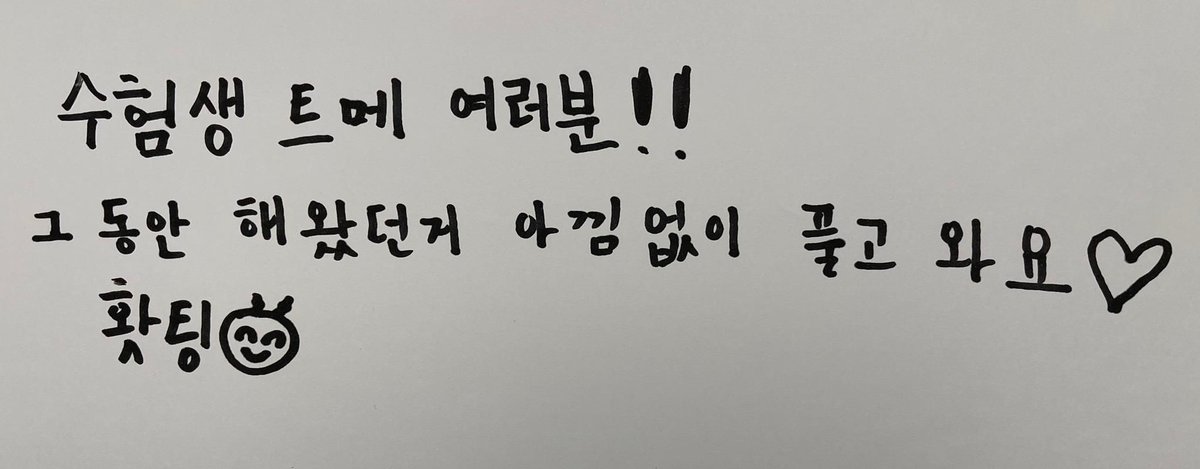 수험생 트메 여러분!!
그동안 해왔던거 아낌없이 풀고 와요♡
홧팅